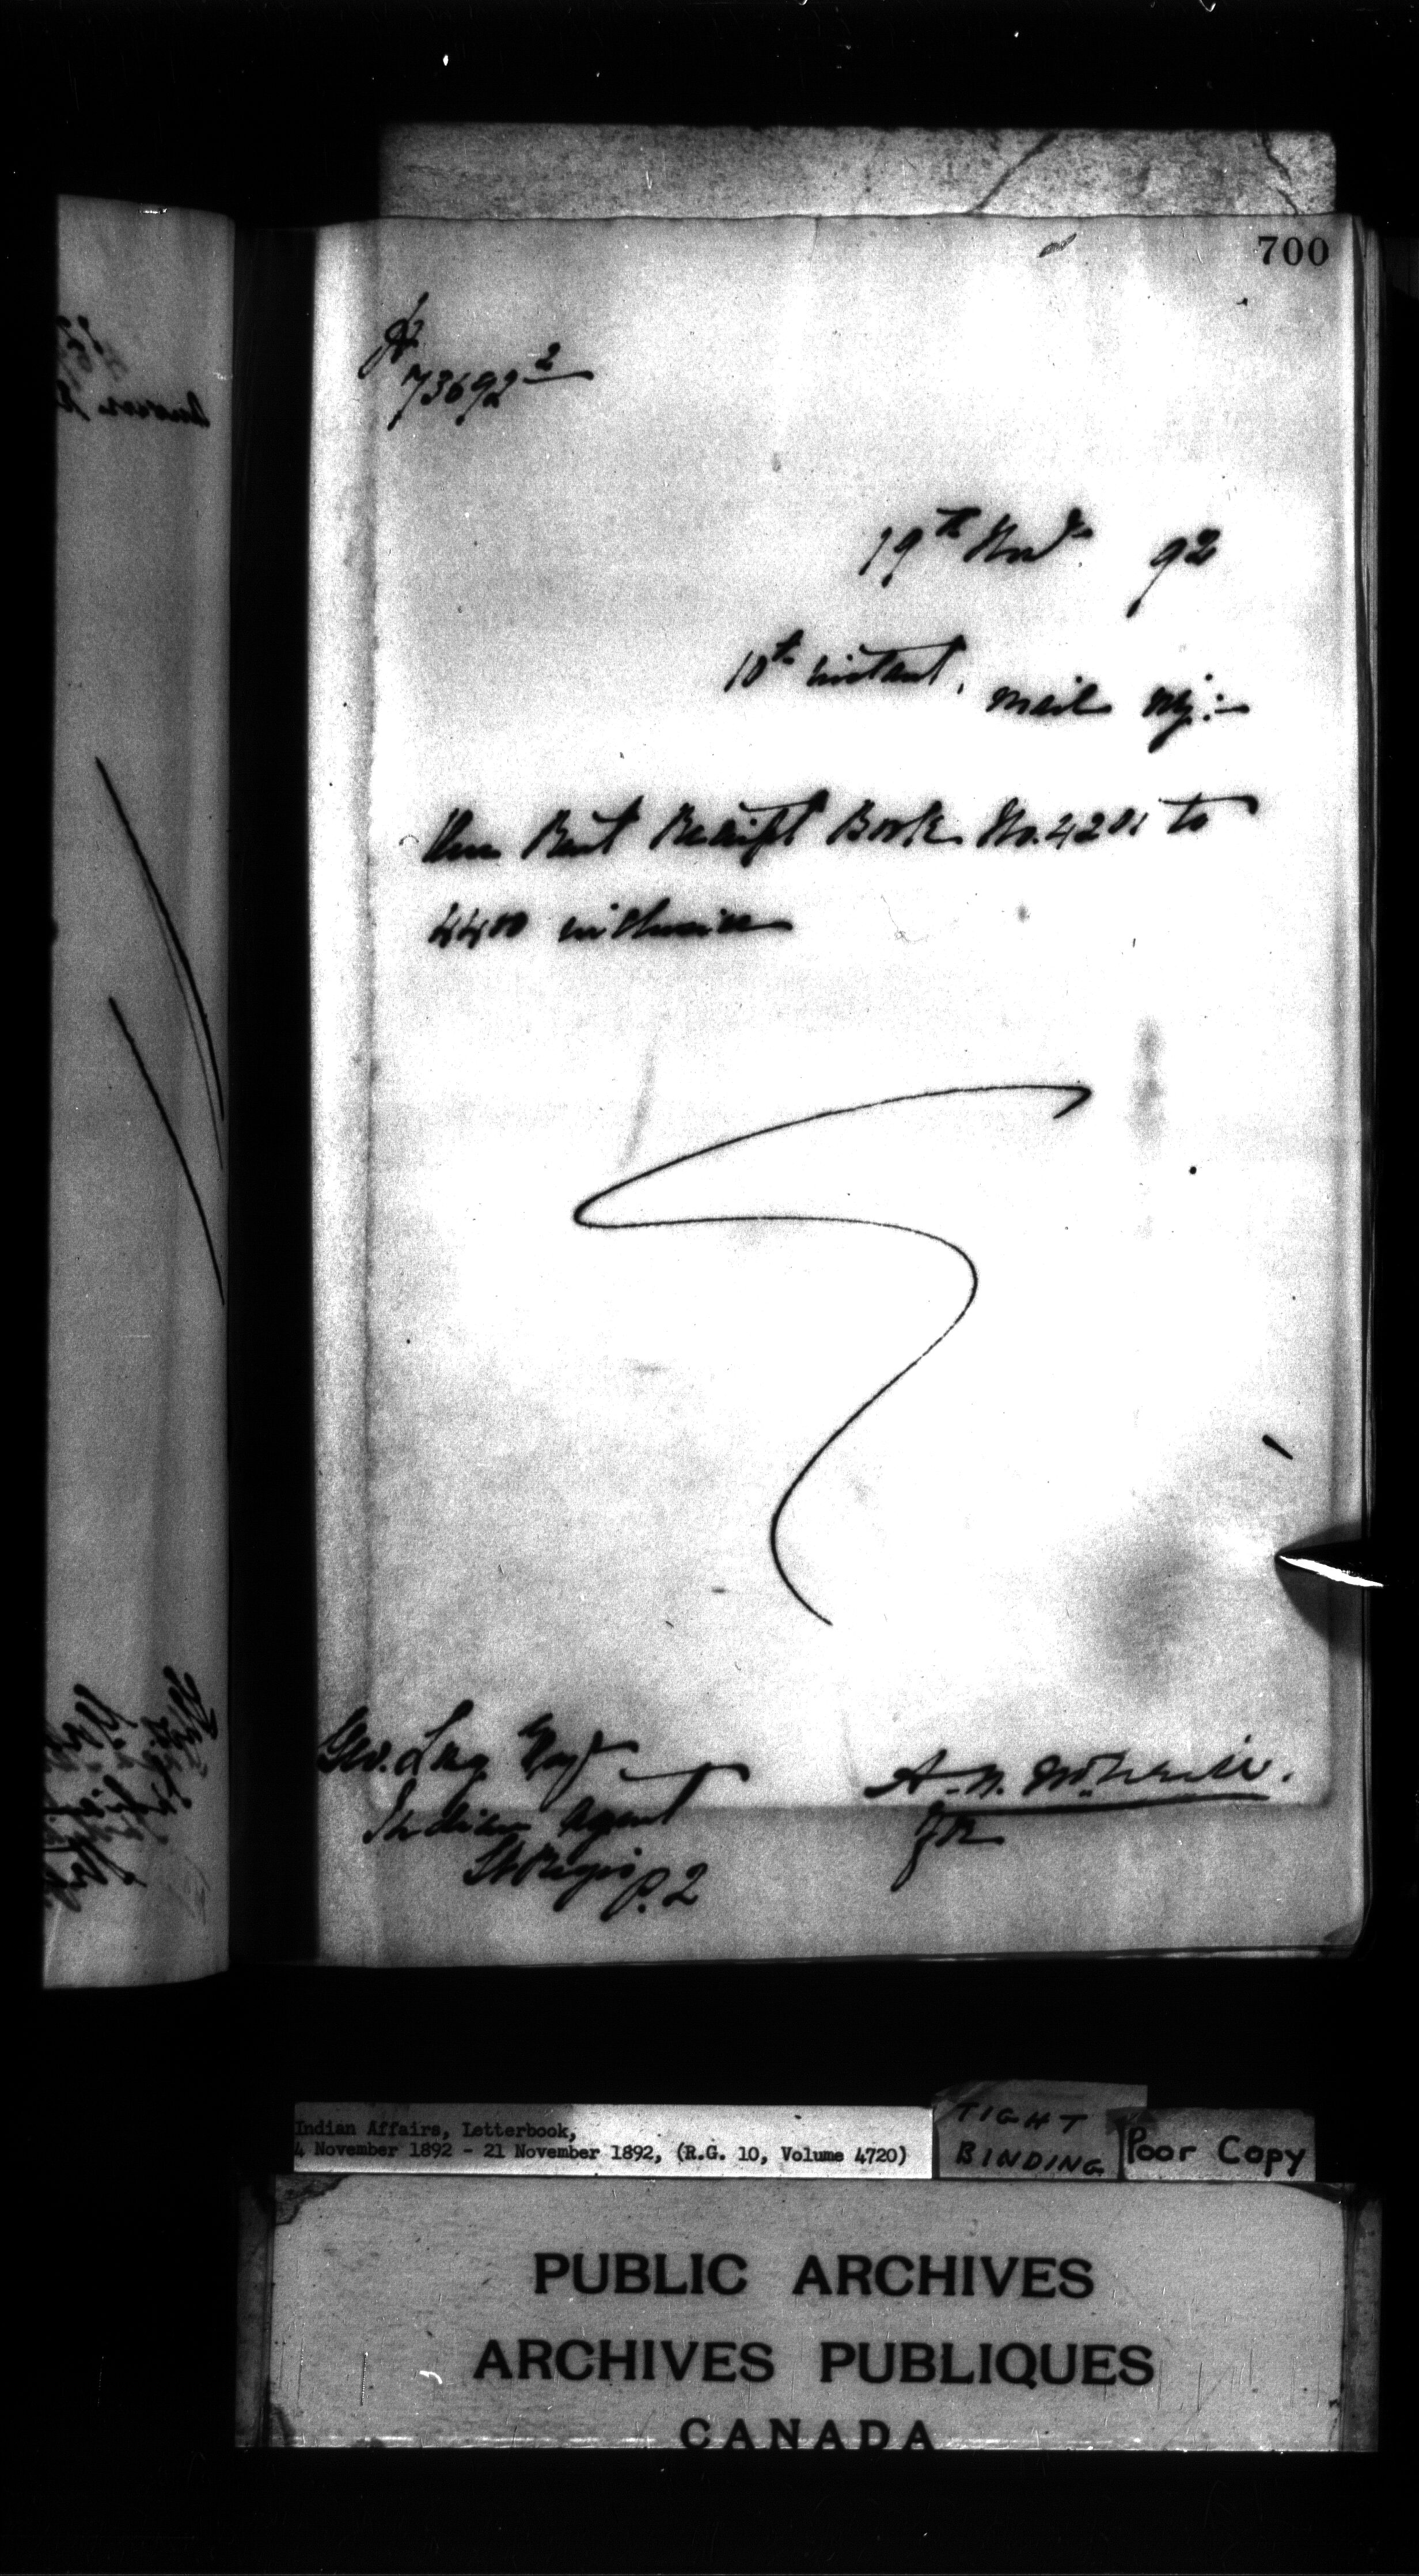 700
73692²
19th Novr. 92
10th instant, mail
Rent Receipt Book No. 4201 to
4400 inclusive
Geo. Long Esq
Indian Agent
St Regis P.Q
A. N. McNeill.
Indian Affairs, Letterbook,
4 November 1892 - 21 November 1892, (R.G. 10, Volume 4720)
TIGHT
BINDING
Poor Copy
PUBLIC ARCHIVES
ARCHIVES PUBLIQUES
CANADA